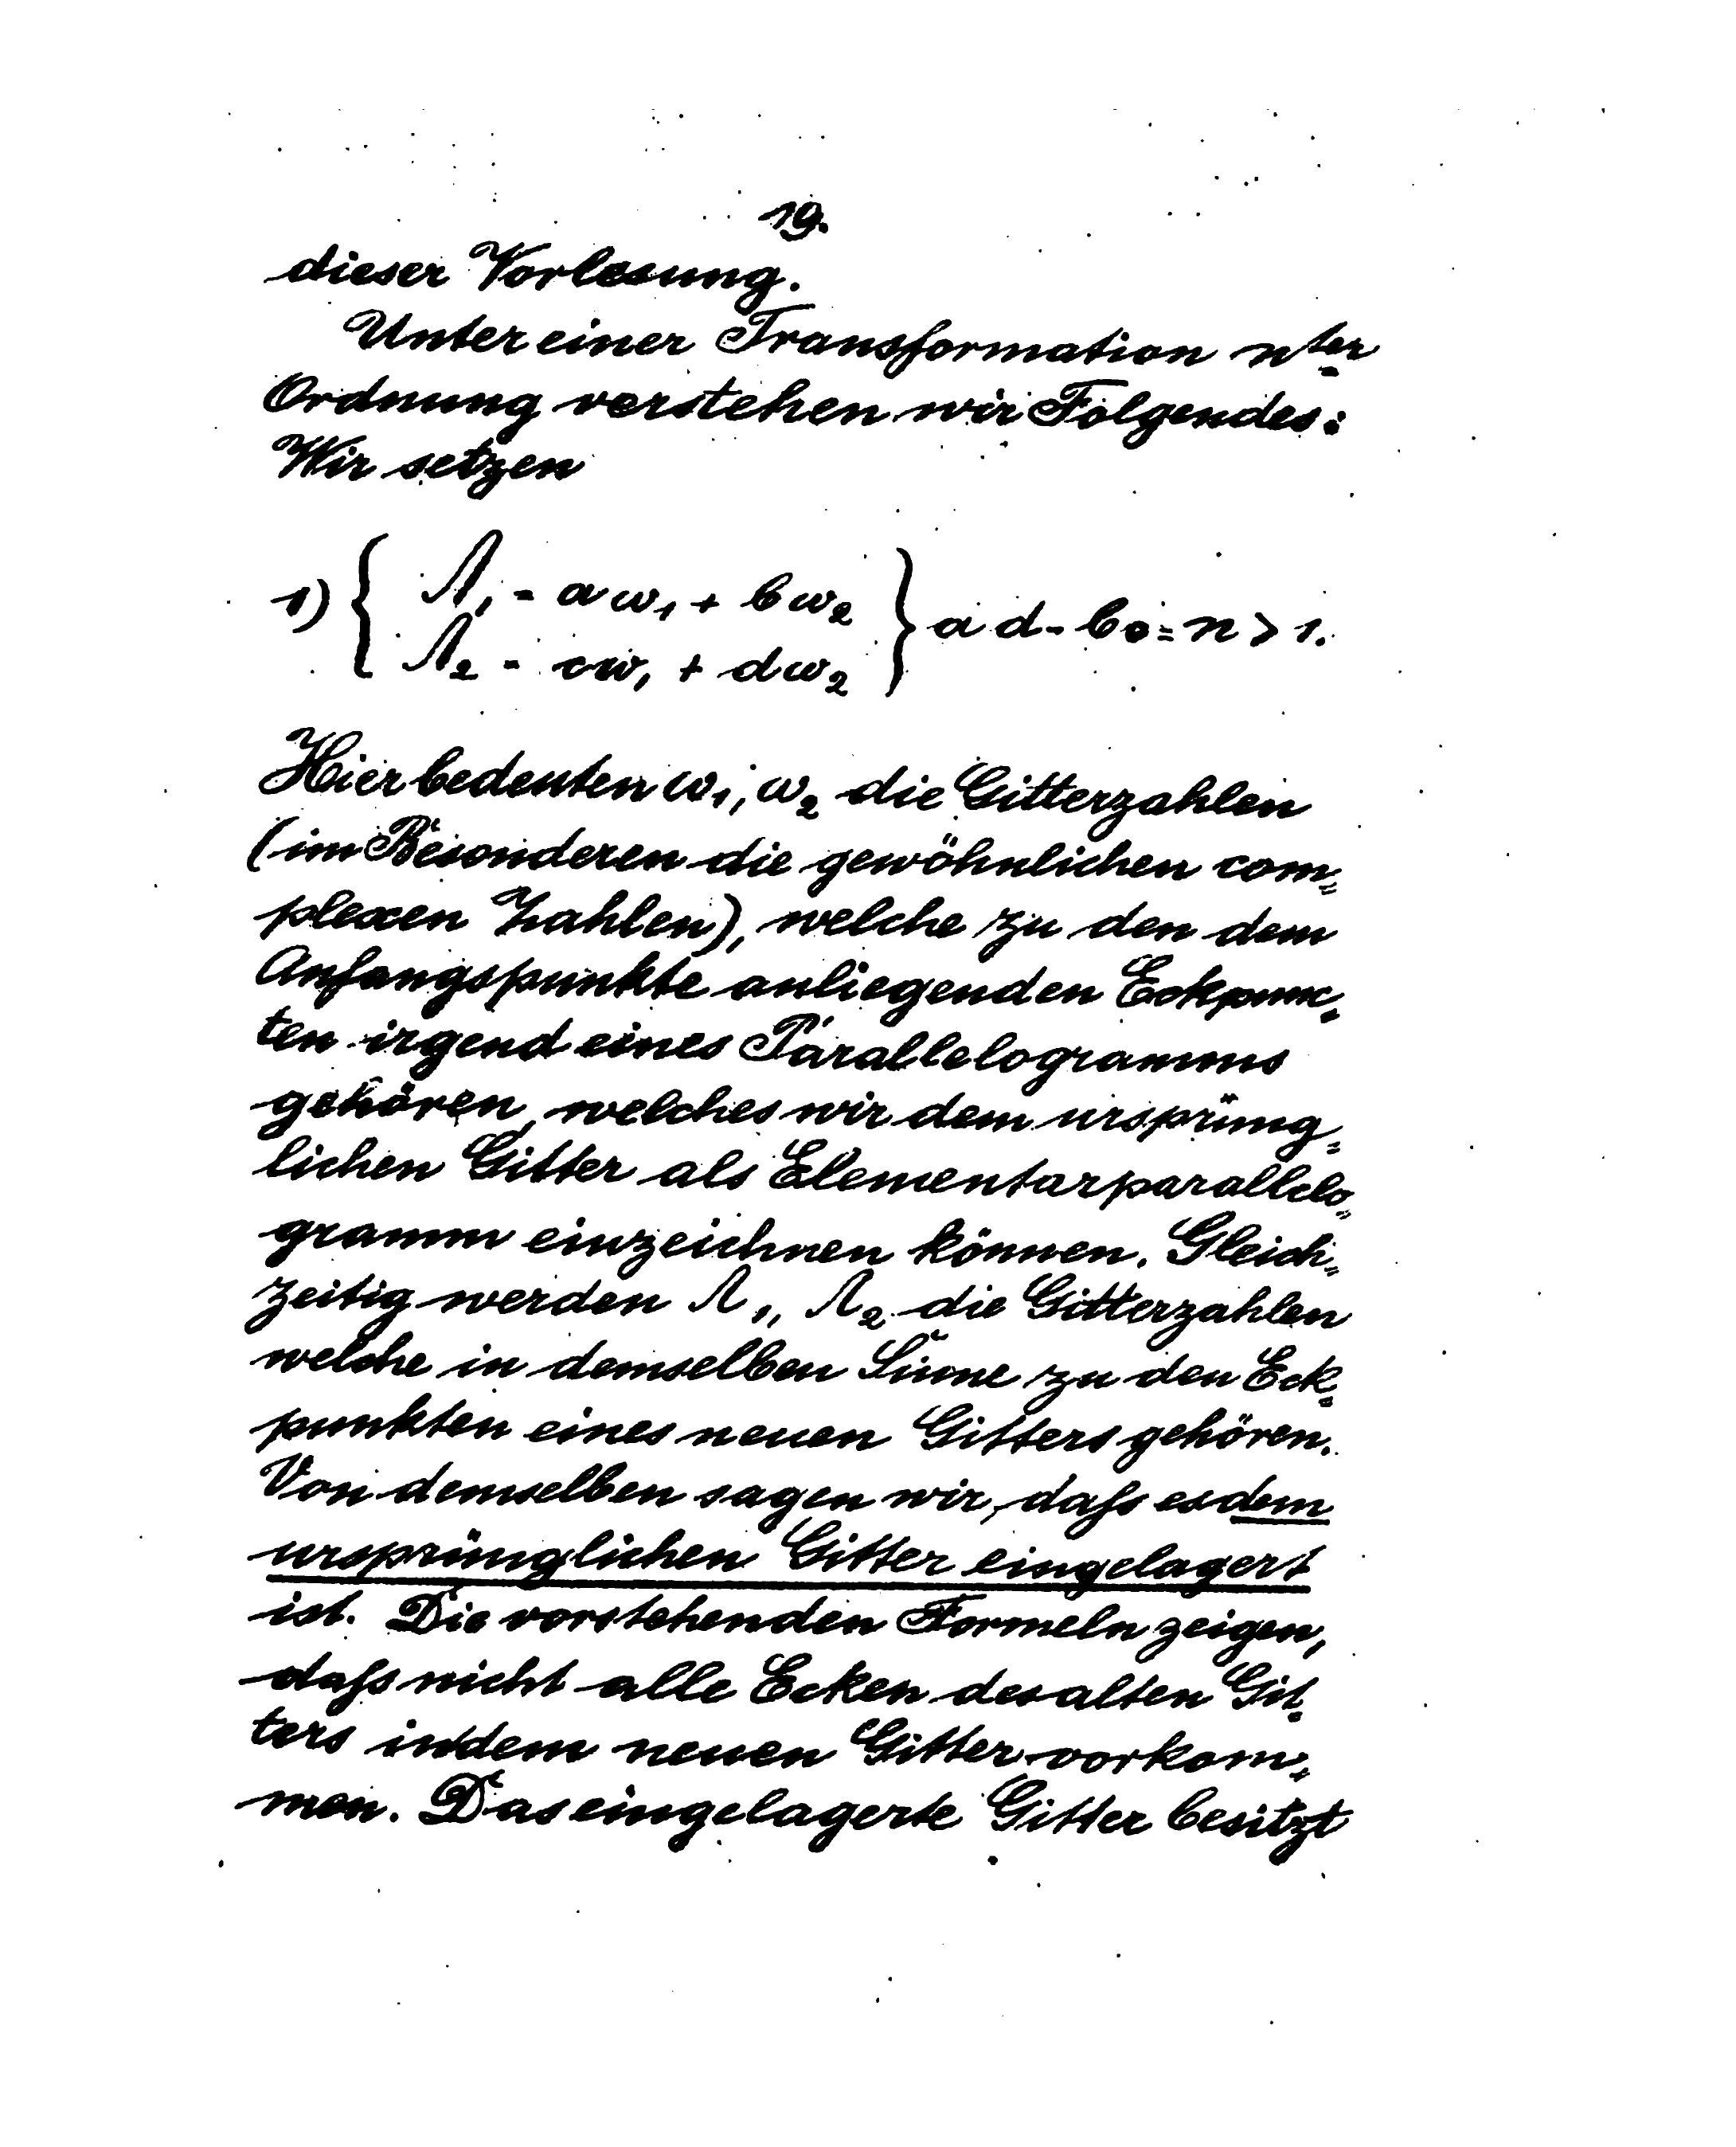 19.
dieser Vorlesung.
Unter einer Transformation nter
Ordnung verstehen wir Folgendes:
Wir setzen
1) { Λ1 = aω1 + bω2
Λ2 = cω1 + dω2 } ad - bc = n > 1.
Hier bedeuten ω1, ω2 die Gitterzahlen
(im Besonderen die gewöhnlichen com=
plexen Zahlen), welche zu den dem
Anfangspunkte anliegenden Eckpunc=
ten irgend eines Parallelogramms
gehören, welches wir dem ursprüng=
lichen Gitter als Elementarparallelo=
gramm einzeichnen können. Gleich=
zeitig werden Λ1, Λ2 die Gitterzahlen
welche in demselben Sinne zu den Eck=
punkten eines neuen Gitters gehören.
Von demselben sagen wir, daſs es dem
ursprünglichen Gitter eingelagert
ist. Die vorstehenden Formeln zeigen,
daſs nicht alle Ecken des alten Git=
ters in dem neuen Gitter vorkom=
men. Das eingelagerte Gitter besitzt